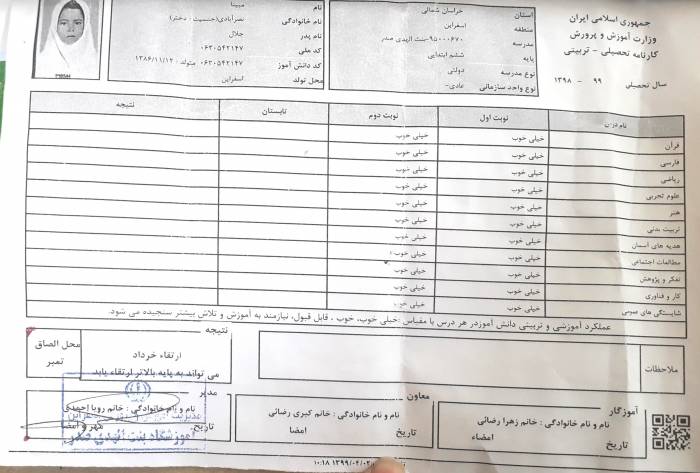 جمهوری اسلامی ایران
وزارت آموزش و پرورش
کارنامه تحصیلی - تربیتی
سال تحصیلی ۹۹ - ۱۳۹۸
استان خراسان شمالی
منطقه اسفراین
مدرسه ۹۵۰۰۰۶۷۰-بنت الهدی صدر
پایه ششم ابتدایی
نوع مدرسه دولتی
نوع واحد سازمانی عادی-
نام مبینا
نام خانوادگی نصرآبادی(جنسیت : دختر)
نام پدر جلال
کد ملی ۰۶۲۰۵۴۲۱۴۷
کد دانش آموز ۰۶۲۰۵۴۲۱۴۷ متولد : ۱۳۸۶/۱۱/۱۲
محل تولد اسفراین
نام درس نوبت اول نوبت دوم تابستان نتیجه
قرآن خیلی خوب خیلی خوب
فارسی خیلی خوب خیلی خوب
ریاضی خیلی خوب خیلی خوب
علوم تجربی خیلی خوب خیلی خوب
هنر خیلی خوب خیلی خوب
تربیت بدنی خیلی خوب خیلی خوب
هدیه های آسمان خیلی خوب خیلی خوب
مطالعات اجتماعی خیلی خوب خیلی خوب
تفکر و پژوهش خیلی خوب خیلی خوب
کار و فناوری خیلی خوب خیلی خوب
شایستگی های عمومی خیلی خوب خیلی خوب
عملکرد آموزشی و تربیتی دانش آموزدر هر درس با مقیاس :خیلی خوب، خوب ، قابل قبول، نیازمند به آموزش و تلاش بیشتر سنجیده می شود.
ملاحظات
نتیجه
ارتقاء خرداد
می تواند به پایه بالاتر ارتقاء یابد
محل الصاق
تمبر
آموزگار
نام و نام خانوادگی : خانم زهرا رضائی
تاریخ امضاء
معاون
نام و نام خانوادگی : خانم کبری رضائی
تاریخ امضا
مدیر
نام و نام خانوادگی : خانم رویا احمدی
تاریخ مهر و امضا
آموزشگاه بنت الهدی صدر